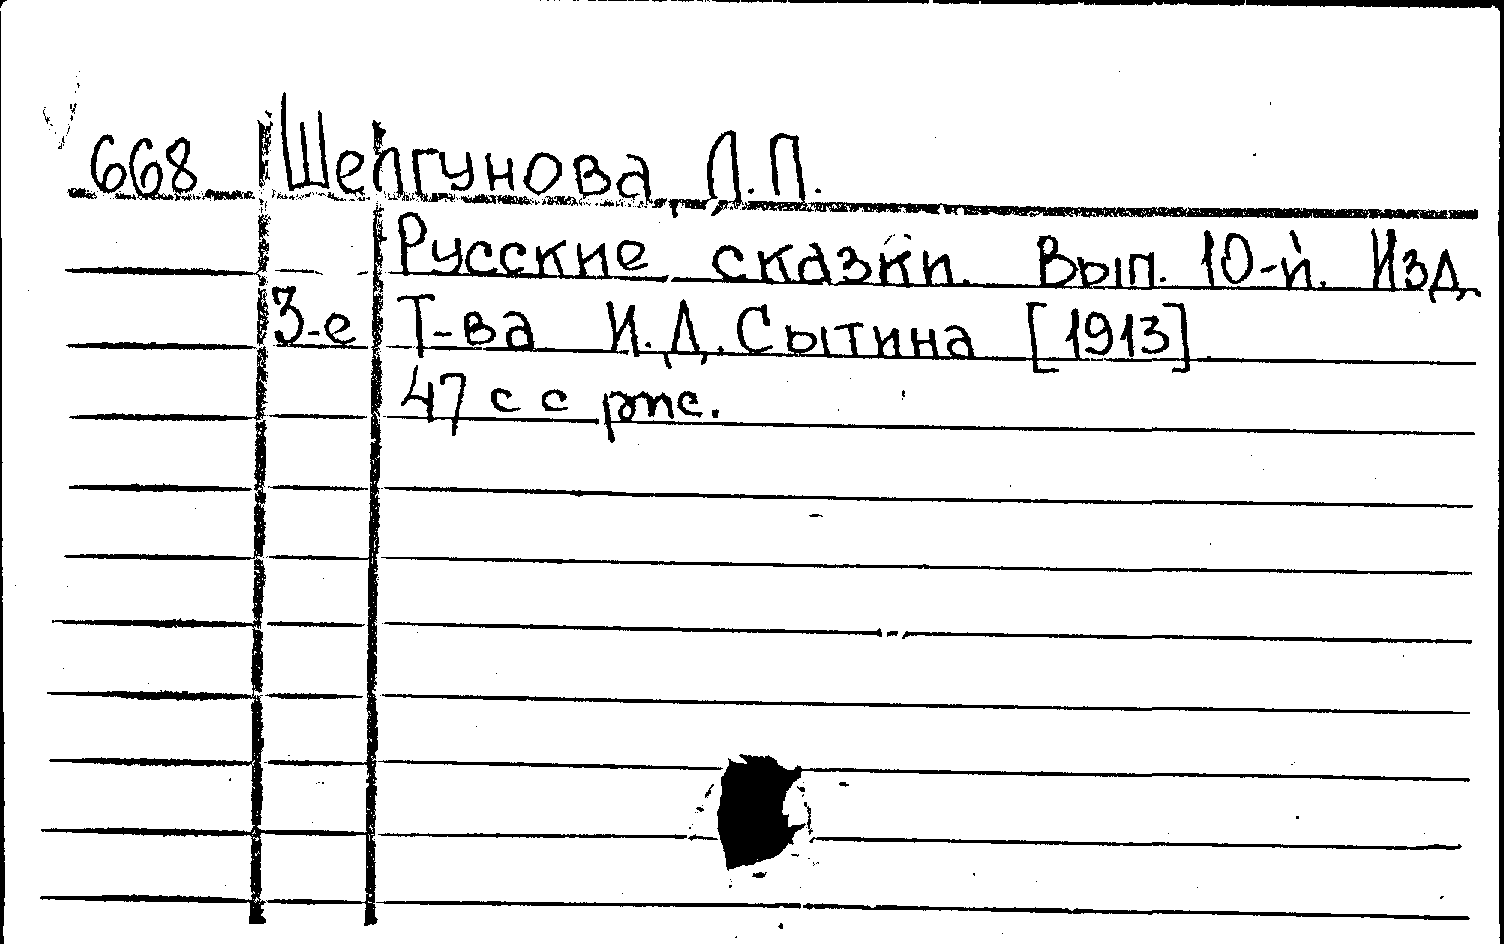 668 Шелгунова Л.П.
Русские сказки. Вып. 10-й. Изд.
3-е Т-ва И.Д.Сытина [1913]
47 с с рис.